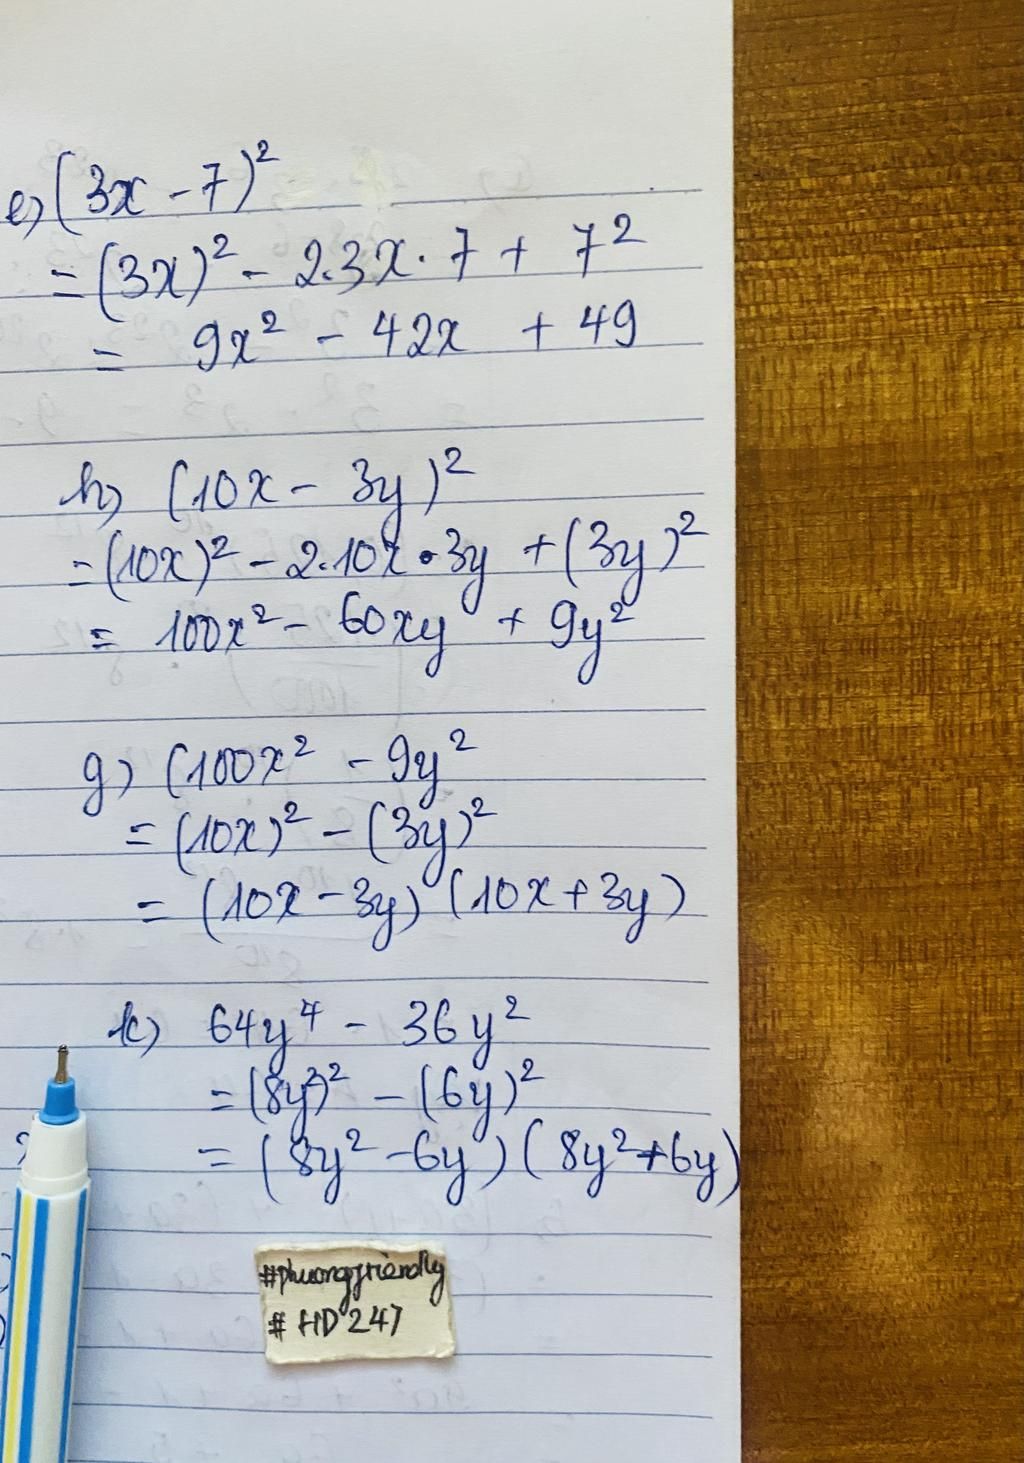 e) (3x - 7)²
= (3x)² - 2.3x.7 + 7²
= 9x² - 42x + 49
h) (10x - 3y)²
= (10x)² - 2.10x.3y + (3y)²
= 100x² - 60xy + 9y²
g) (100x² - 9y²
= (10x)² - (3y)²
= (10x - 3y) (10x + 3y)
k) 64y⁴ - 36y²
= (8y²)² - (6y)²
= (8y² - 6y) (8y² + 6y)
#phuongfriendly
# HD247